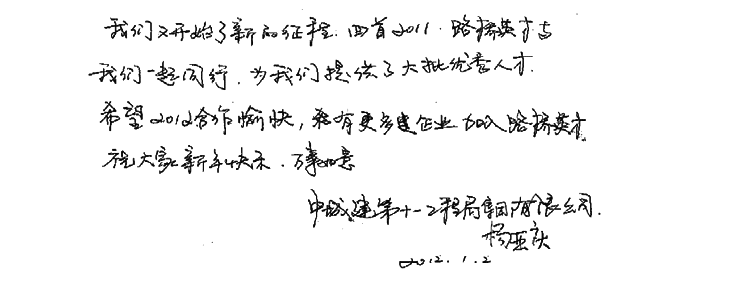 我们又开始了新的征程.回首2011.路桥英才与
我们一起同行.为我们提供了大批优秀人才.
希望2012合作愉快,能有更多建企业加入路桥英才
祝大家新年快乐.万事如意
中城建第十一工程局集团有限公司.
杨亚庆
2012.1.2